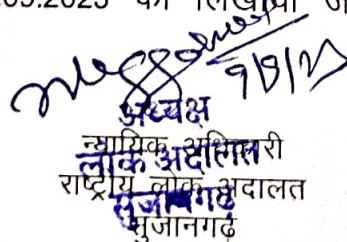 .09.2023 को लिखाया ज
9/9/23
अध्यक्ष
न्यायिक अधिकारी
लोक अदालत
राष्ट्रीय लोक अदालत
सुजानगढ़
सुजानगढ़